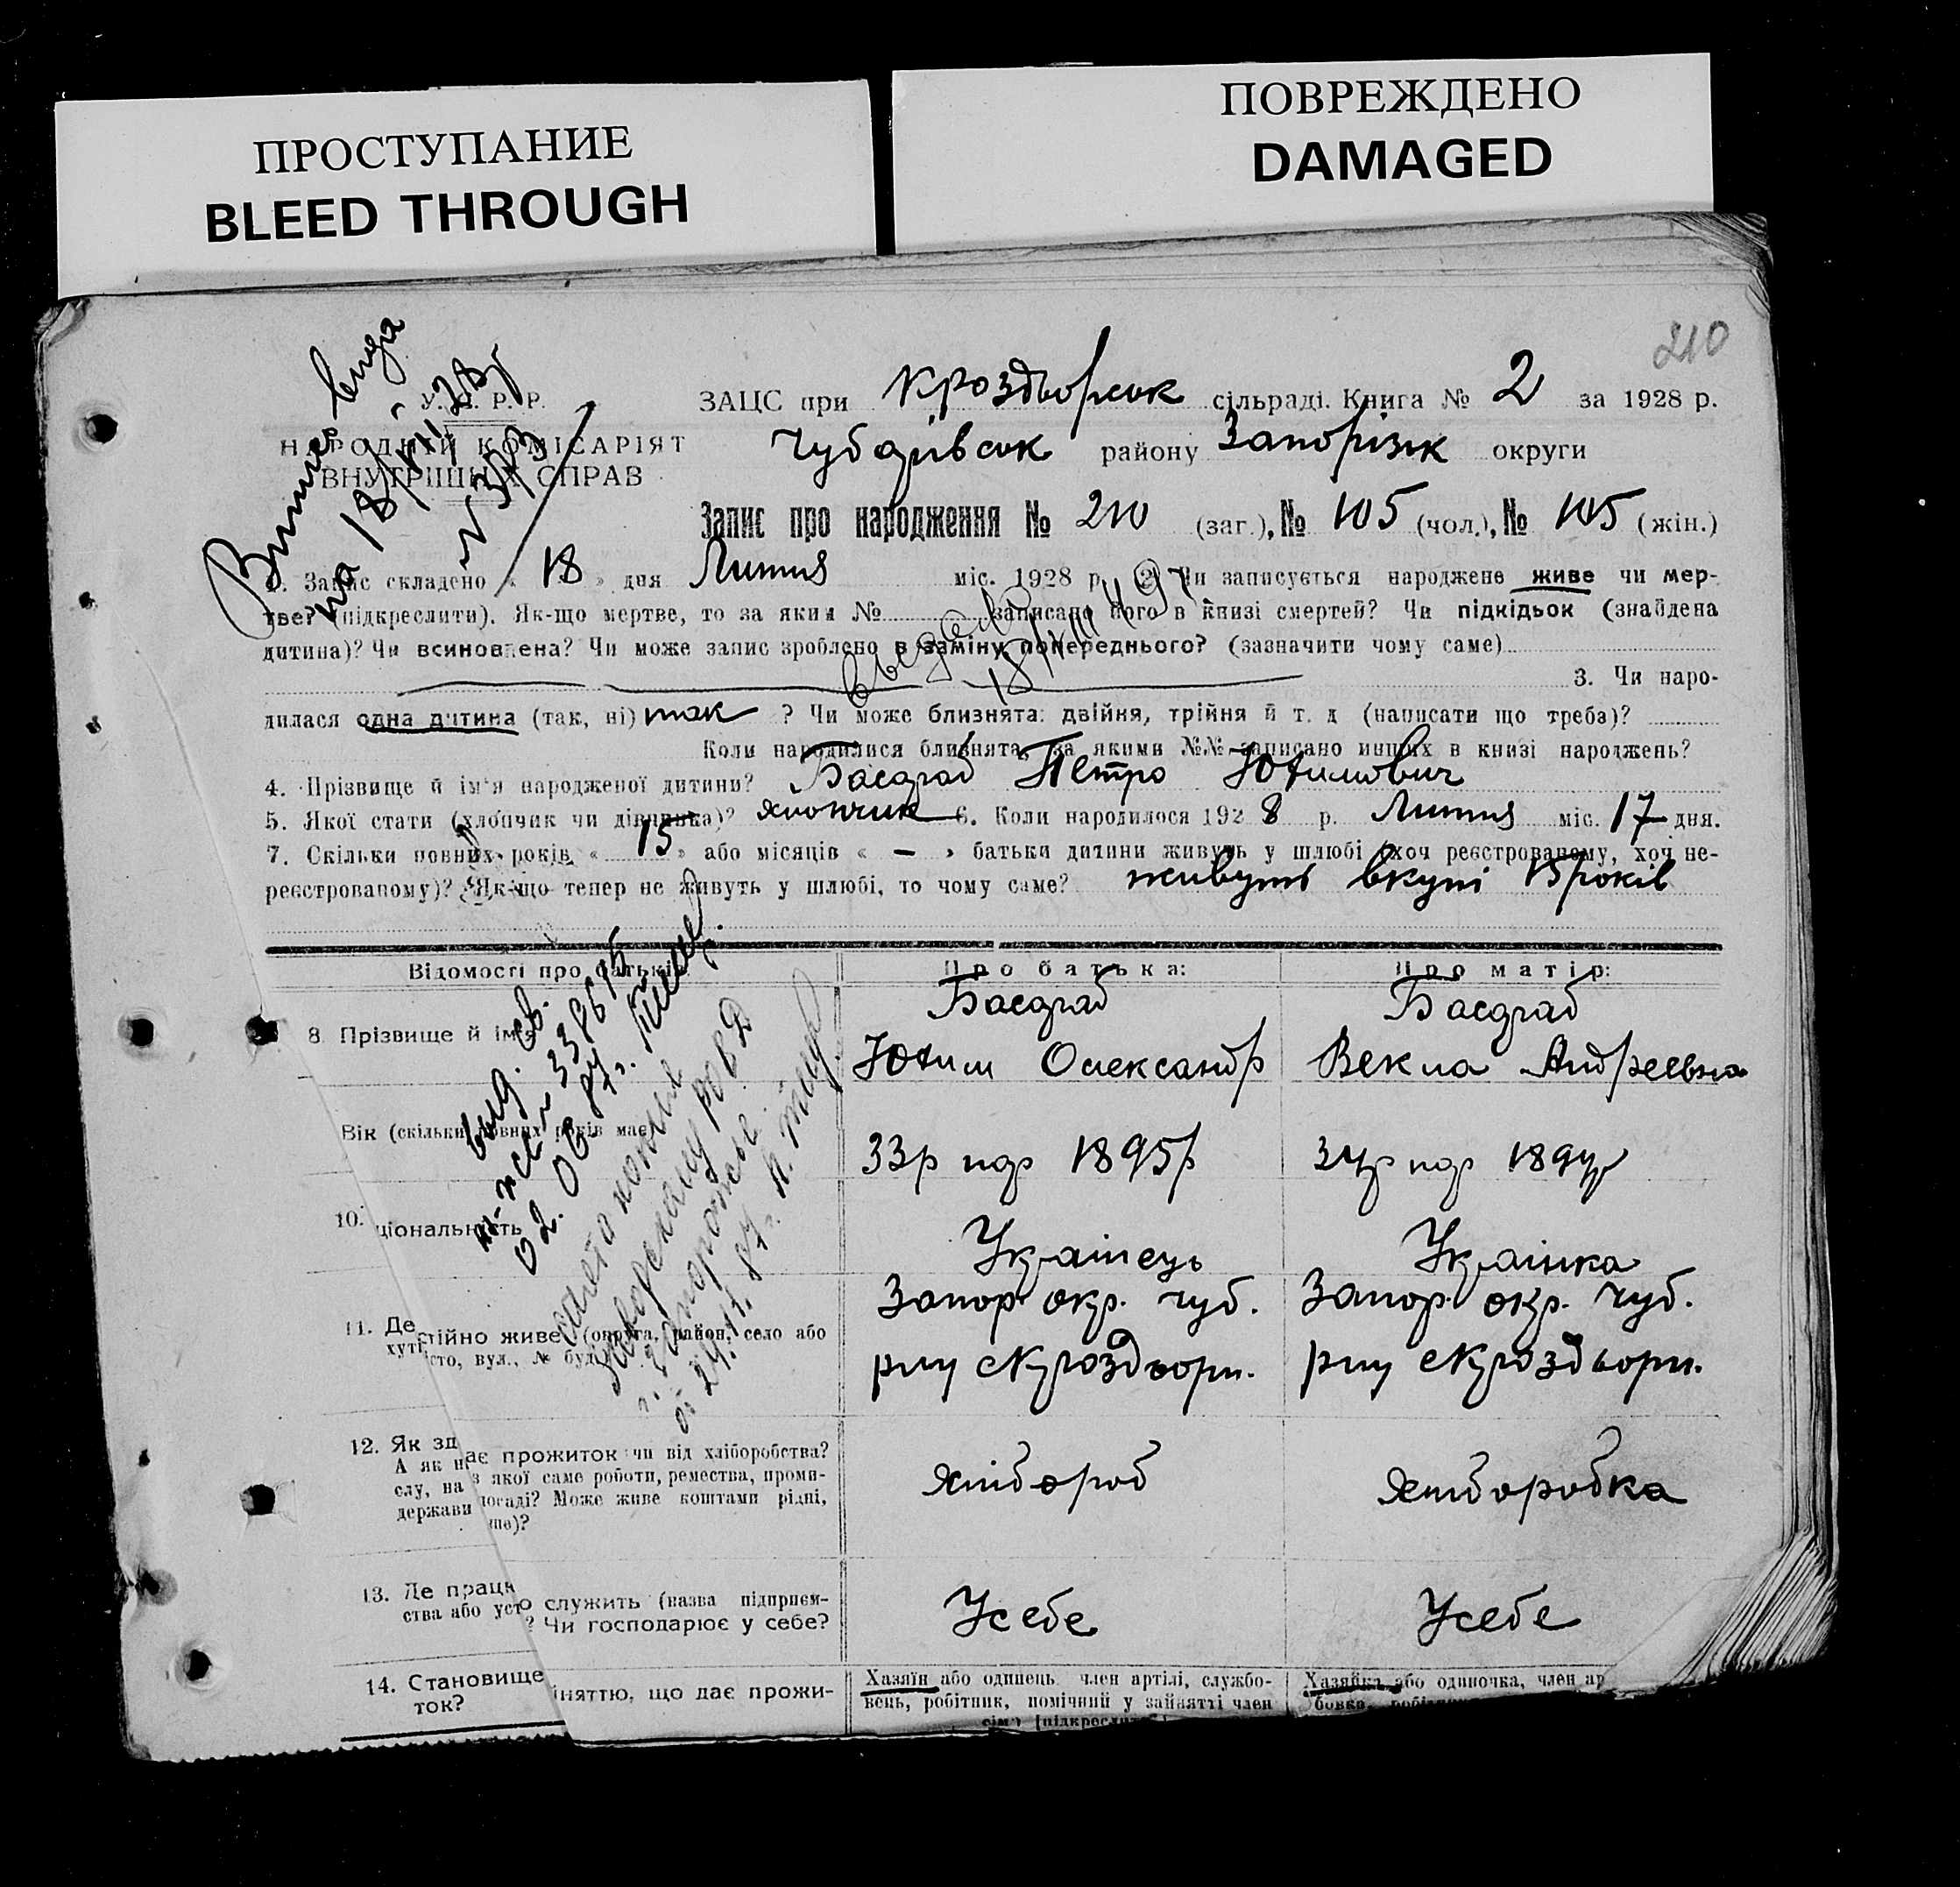 ПРОСТУПАНИЕ
BLEED THROUGH
ПОВРЕЖДЕНО
DAMAGED
210
У. Р. Р.
НАРОДНИЙ КОМІСАРІЯТ
ВНУТРІШНІХ СПРАВ
на 18/VII
ЗАЦС при Кроздворськ сільраді. Книга № 2 за 1928 р.
району Запорізьк округи
Запис про народження № 210 (заг.), № 105 (чол.), № 105 (жін.)
1. Запис складено « 18 » дня Лютня міс. 1928 р. 2. Чи записується народжене живе чи мер-
тве? (підкреслити). Як-що мертве, то за яким № записано його в книзі смертей? Чи підкідьок (знайдена
дитина)? Чи всиновлена? Чи може запис зроблено в заміну попереднього? (зазначити чому саме)
3. Чи наро-
дилася одна дитина (так, ні) так ? Чи може близнята: двійня, трійня й т. д (написати що треба)?
Коли народилися близнята, за якими №№ записано инших в книзі народжень?
4. Прізвище й ім'я народженої дитини? Басараб Петро Юхимович
5. Якої стати (хлопчик чи дівчинка)? хлопчик 6. Коли народилося 1928 р. Лютня міс. 17 дня.
7. Скільки повних років « 15 » або місяців « — » батьки дитини живуть у шлюбі (хоч реєстрованому, хоч не-
реєстрованому)? Як-що тепер не живуть у шлюбі, то чому саме? живуть вкупі 15 років
Відомості про батьків
Про батька:
Про матір:
8. Прізвище й ім'я
Басараб
Юхим Олександр
Басараб
Векла Андреевна
Вік (скільки повних років має)
33р нар 1895р
34р нар 1894р
10. ціональність
Українець
Українка
11. Де стійно живе (округа, район, село або
хуті істо, вул., № буд.
Запор. окр. Чуб.
Запор. окр. Чуб.
12. Як зд ає прожиток чи від хліборобства?
А як н з якої саме роботи, ремества, проми-
слу, на посаді? Може живе коштами рідні,
держави ше)?
хлібороб
хліборобка
13. Де праці о служить (назва підприєм-
ства або уст ? Чи господарює у себе?
Усебе
Усебе
14. Становище іняттю, що дає прожи-
ток?
Хазяїн або одинець, член артілі, службо-
вець, робітник, помічний у занятті член
Хазяйка або одиночка, член ар
вид. св.
02. 06 87г.